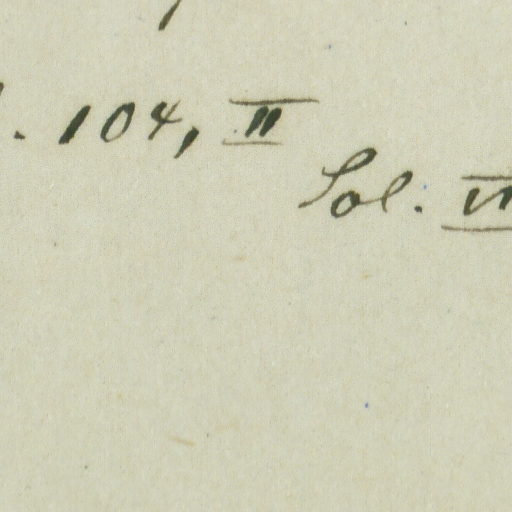 . 104, II
Sol.